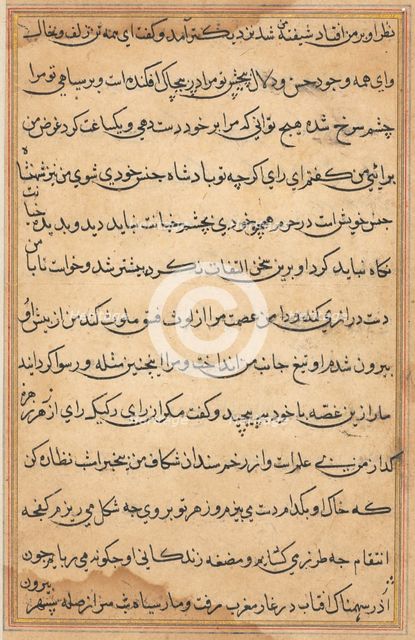 نظر او بر من افتاد شیفتهٔ من شد نزدیکتر آمد و گفت ای همه تن زلف و بخال
وای همه وجود حسن و دلال پیچش تو مرا در پیچاک افکنده است و بر سیاهی تو مرا
چشم سرخ شده هیچ توانی که مرا بر خود دست دهی و یکساعت کرد غرض من
برائی من گفتم ای رای کرچه تو پادشاه جنس خودی شوی من نیز شحنهٔ
جنس خویش است در حرم همچو خودی بچشم خیانت نباید دید و بدیدهٔ
نکاه نباید کرد او برین سخن التفات نکرد پیشتر شد و خواست تا با من
دست درازی کند و دامن عصمت مرا از لوث فسق ملوث کند من از پیش او
بیرون شدم او تیغ جانب من انداخت و مرا اینچنین مثله و رسوا کردانید
مار ازین غصه با خود بپیچید و گفت مکر این رای رکیک رای از زهر زهره
کدار من بی علم است و از زخم سندان شکاف من بیخبر امشب نظاره کن
که خاک او بکدام دست می بیزم و زهر تو بر وی چه شکل می ریزم کنجه
انتقام چه طرز می کشایم و مضغه زندکانی او چکونه می ربایم چون
اژدر سهمناک افتاب در غار مغرب رفت و مار سیاه شب از صله سپهر بیرون